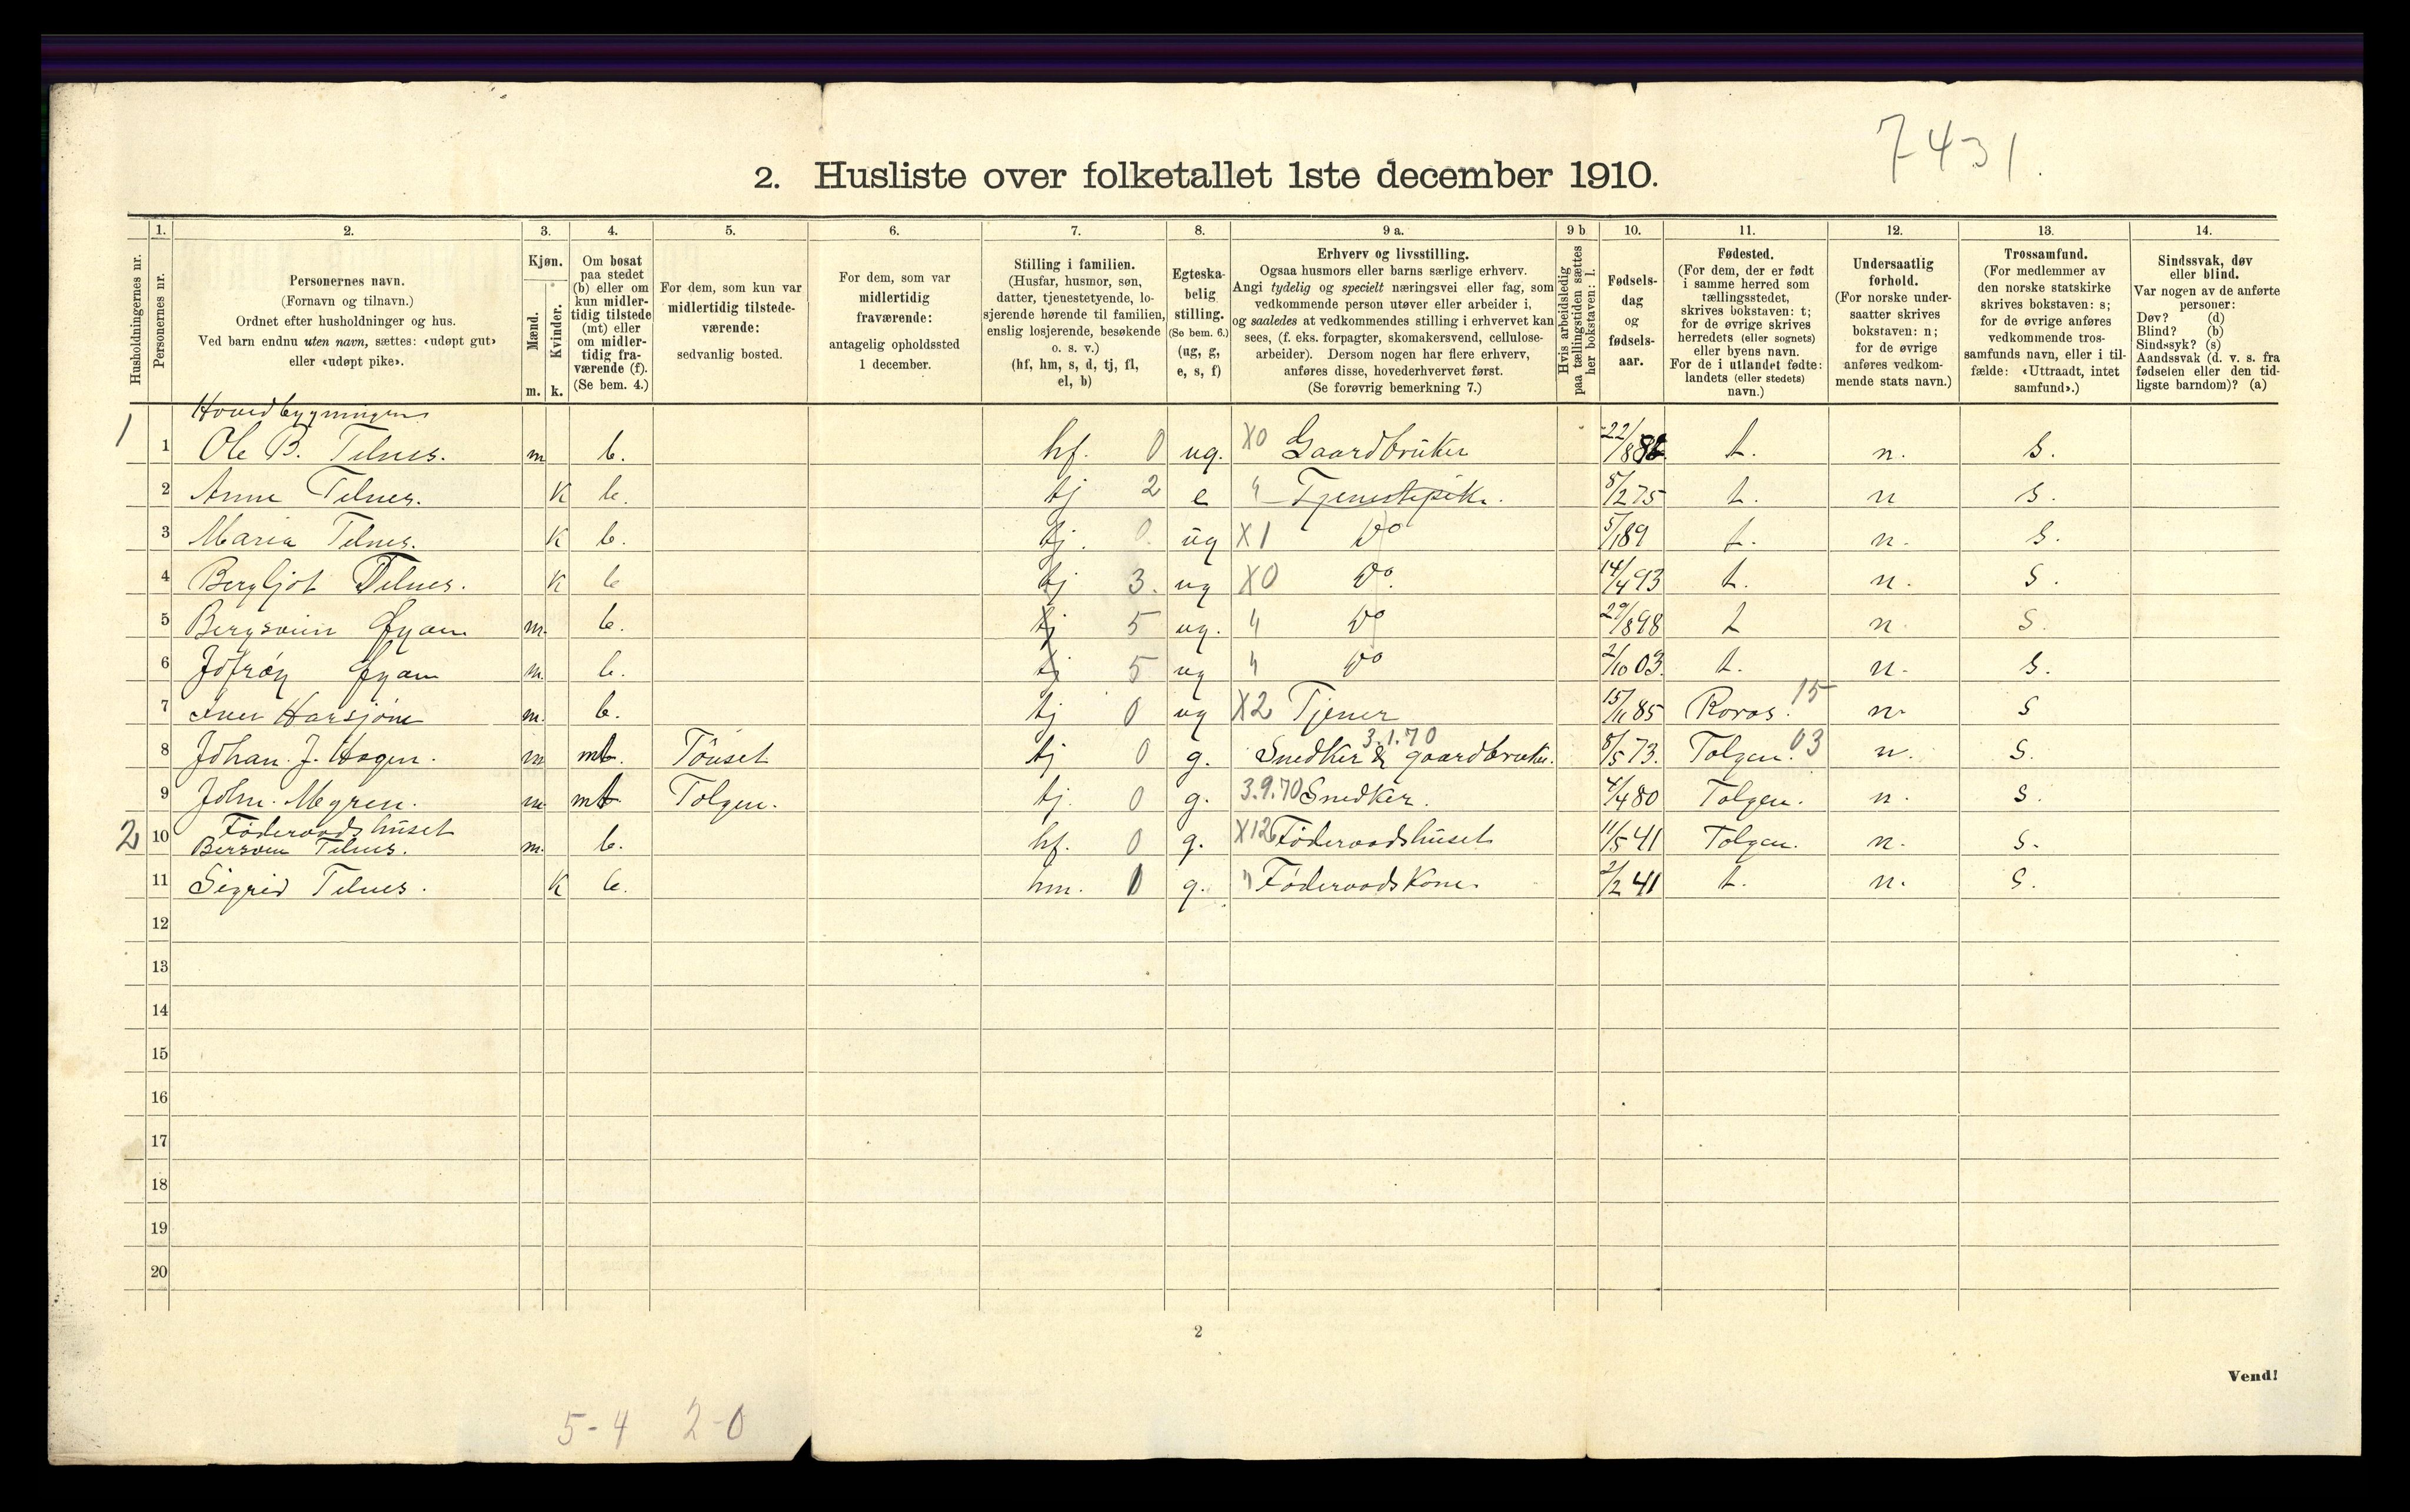 7431.
2. Husliste over folketallet 1ste december 1910.
Husholdningernes nr.
1. Personernes nr.
2. Personernes navn. (Fornavn og tilnavn.) Ordnet efter husholdninger og hus. Ved barn endnu uten navn, sættes: «udøpt gut» eller «udøpt pike».
3. Kjøn. Mænd. m. Kvinder. k.
4. Om bosat paa stedet (b) eller om kun midlertidig tilstede (mt) eller om midlertidig fraværende (f). (Se bem. 4.)
5. For dem, som kun var midlertidig tilstedeværende: sedvanlig bosted.
6. For dem, som var midlertidig fraværende: antagelig opholdssted 1 december.
7. Stilling i familien. (Husfar, husmor, søn, datter, tjenestetyende, losjerende hørende til familien, enslig losjerende, besøkende o. s. v.) (hf, hm, s, d, tj, fl, el, b)
8. Egteskabelig stilling. (Se bem. 6.) (ug, g, e, s, f)
9 a. Erhverv og livsstilling. Ogsaa husmors eller barns særlige erhverv. Angi tydelig og specielt næringsvei eller fag, som vedkommende person utøver eller arbeider i, og saaledes at vedkommendes stilling i erhvervet kan sees, (f. eks. forpagter, skomakersvend, cellulosearbeider). Dersom nogen har flere erhverv, anføres disse, hovederhvervet først. (Se forøvrig bemerkning 7.)
9 b Hvis arbeidsledig paa tællingstiden sættes her bokstaven: l.
10. Fødselsdag og fødselsaar.
11. Fødested. (For dem, der er født i samme herred som tællingsstedet, skrives bokstaven: t; for de øvrige skrives herredets (eller sognets) eller byens navn. For de i utlandet fødte: landets (eller stedets) navn.)
12. Undersaatlig forhold. (For norske undersaatter skrives bokstaven: n; for de øvrige anføres vedkommende stats navn.)
13. Trossamfund. (For medlemmer av den norske statskirke skrives bokstaven: s; for de øvrige anføres vedkommende trossamfunds navn, eller i tilfælde: «Uttraadt, intet samfund».)
14. Sindssvak, døv eller blind. Var nogen av de anførte personer: Døv? (d) Blind? (b) Sindssyk? (s) Aandssvak (d. v. s. fra fødselen eller den tidligste barndom)? (a)
Hovedbygningen
1 1 Ole B. Telnes. m b. hf. 0 ug. X0 Gaardbruker 22/8 86 t. n. s.
2 Anne Telnes. K b. tj 2 e " Tjenestepike. 5/2 75 t. n s.
3 Maria Telnes. K b. tj. 0. ug X1 Do 5/1 89 t. n. s.
4 Bergljot Telnes. K b tj 3. ug X0 Do. 14/4 93 t. n. s.
5 m. b. tj 5 ug. " Do 29/8 98 t n s.
6 m. b. tj 5 ug " Do 2/10 03. t. n. s.
7 Harsjøne m. b. tj 0 ug X2 Tjener 15/11 85 Roros. 15 n. s
8 Johan. J. Hagen. m mt. Tönset tj 0 g. 3.1.70 Snedker & gaardbruker. 8/5 73. Tolgen. 03 n. s.
9 John. Megren. m mt. Tolgen. tj. 0 g. 3.9.70 Snedker. 4/4 80 Tolgen. n. s.
Föderaadshuset
2 10 Telnes. m. b. hf. 0 g. X12 Föderaadshuset 11/5 41 Tolgen. n. s.
11 Sigrid Telnes. K b. hm. 1 g. " Föderaadskone. 2/2 41 t. n. s.
12
13
14
15
16
17
18
19
20
2
Vend!
5-4 2-0